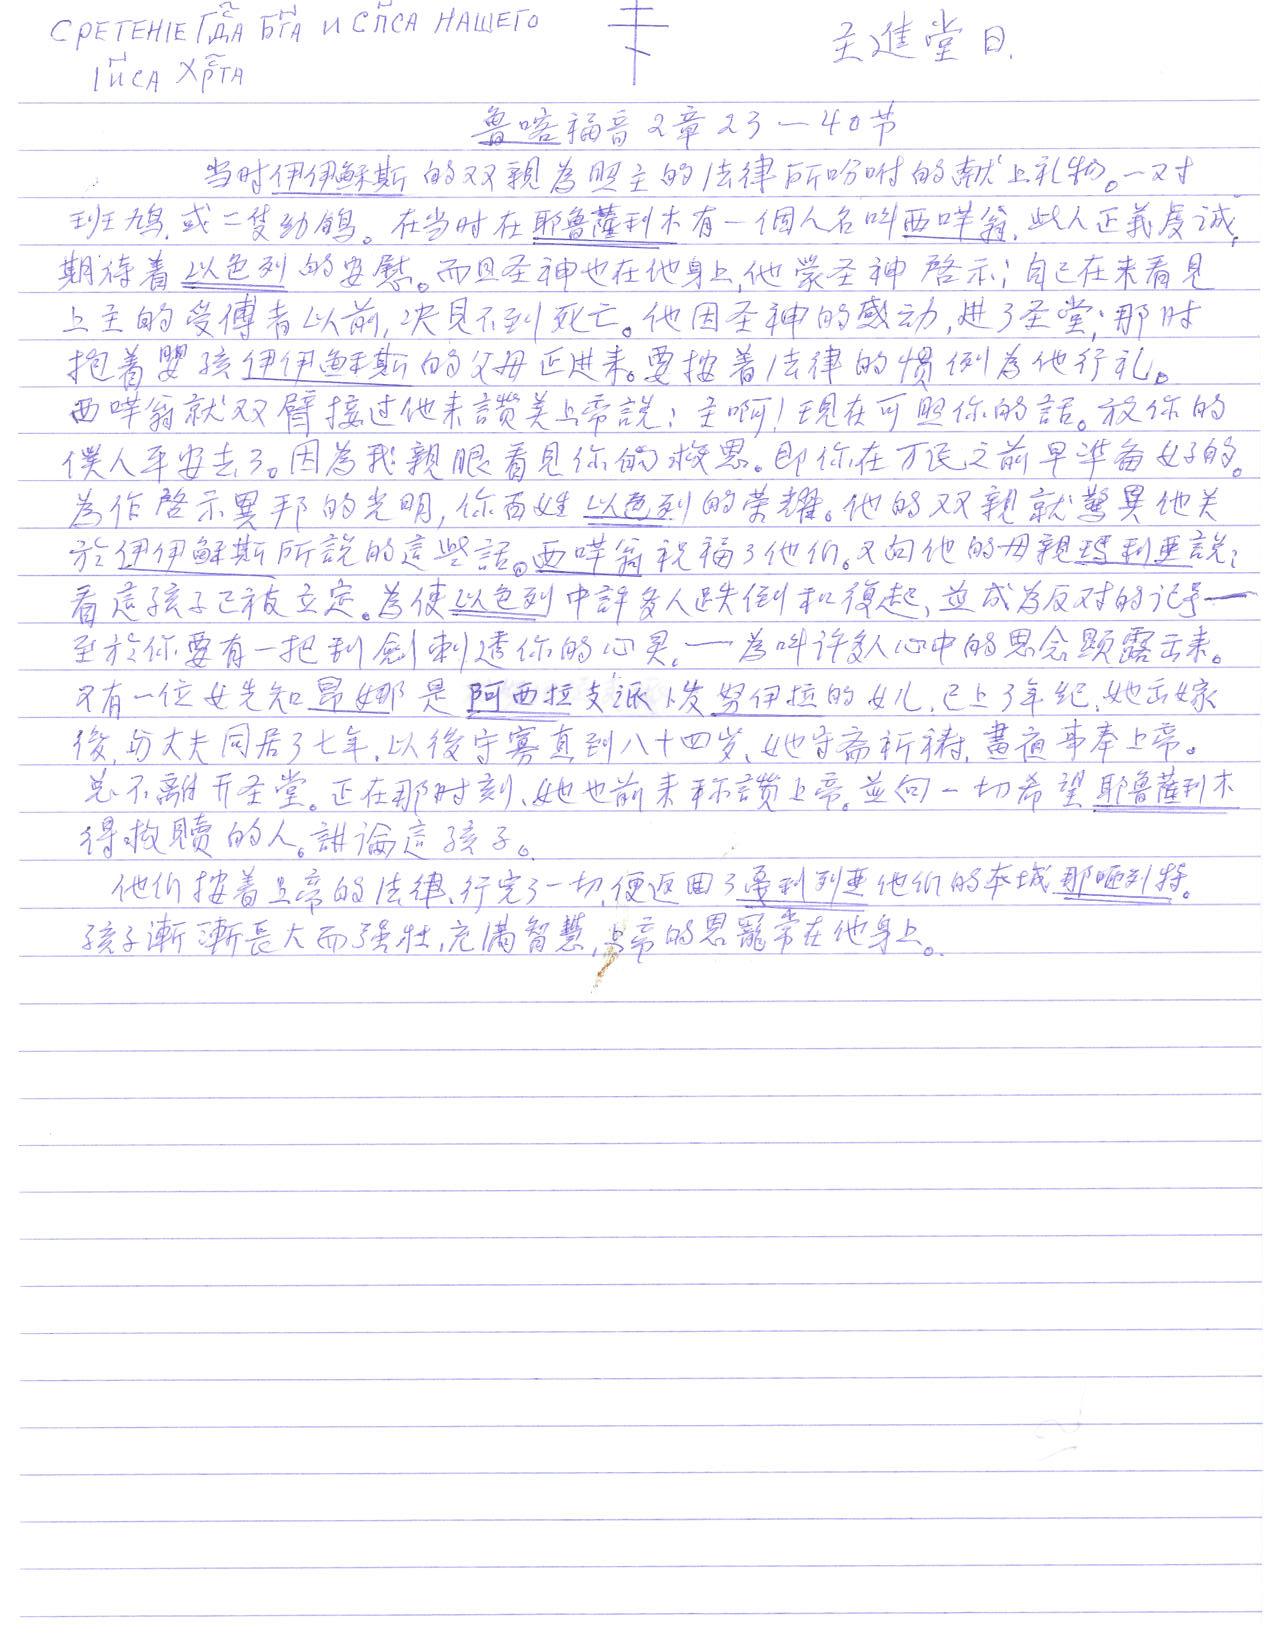 СРЕТЕНІЕ ГДА БГА И СПСА НАШЕГО
ІИСА ХРТА
主進堂日.
魯喀福音2章23—40节
当时伊伊穌斯的双親為照主的法律所吩咐的献上礼物。一对
班鳩,或二隻幼鴿。在当时在耶魯薩利木有一個人名叫西咩翁,此人正義虔诚,
期待着以色列的安慰。而且圣神也在他身上,他蒙圣神啓示;自己在未看見
上主的受傅者以前,决見不到死亡。他因圣神的感动,进了圣堂;那时
抱着嬰孩伊伊穌斯的父母正进来。要按着法律的惯例為他行礼。
西咩翁就双臂接过他来讚美上帝説:主啊!現在可照你的話。放你的
僕人平安去了。因為我親眼看見你的救恩。即你在万民之前早準备好的。
為作啓示異邦的光明,你百姓以色列的荣耀。他的双親就驚異他关
於伊伊穌斯所説的這些話。西咩翁祝福了他们。又向他的母親瑪利亜説:
看這孩子已被立定。為使以色列中許多人跌倒和復起,並成為反对的记号—
至於你要有一把利劍刺透你的心灵。—為叫许多人心中的思念顕露出来。
又有一位女先知昂娜是阿西拉支派,发努伊拉的女儿,已上了年紀,她出嫁
後,与丈夫同居了七年,以後守寡直到八十四岁,她守斋祈禱,晝夜事奉上帝。
总不離开圣堂。正在那时刻、她也前来称讚上帝。並向一切希望耶魯薩利木
得救贖的人。講論這孩子。
他们按着上帝的法律、行完了一切,便返回了戞利列亜他们的本城那咂列特。
孩子漸漸長大而强壮,充满智慧,上帝的恩寵常在他身上。